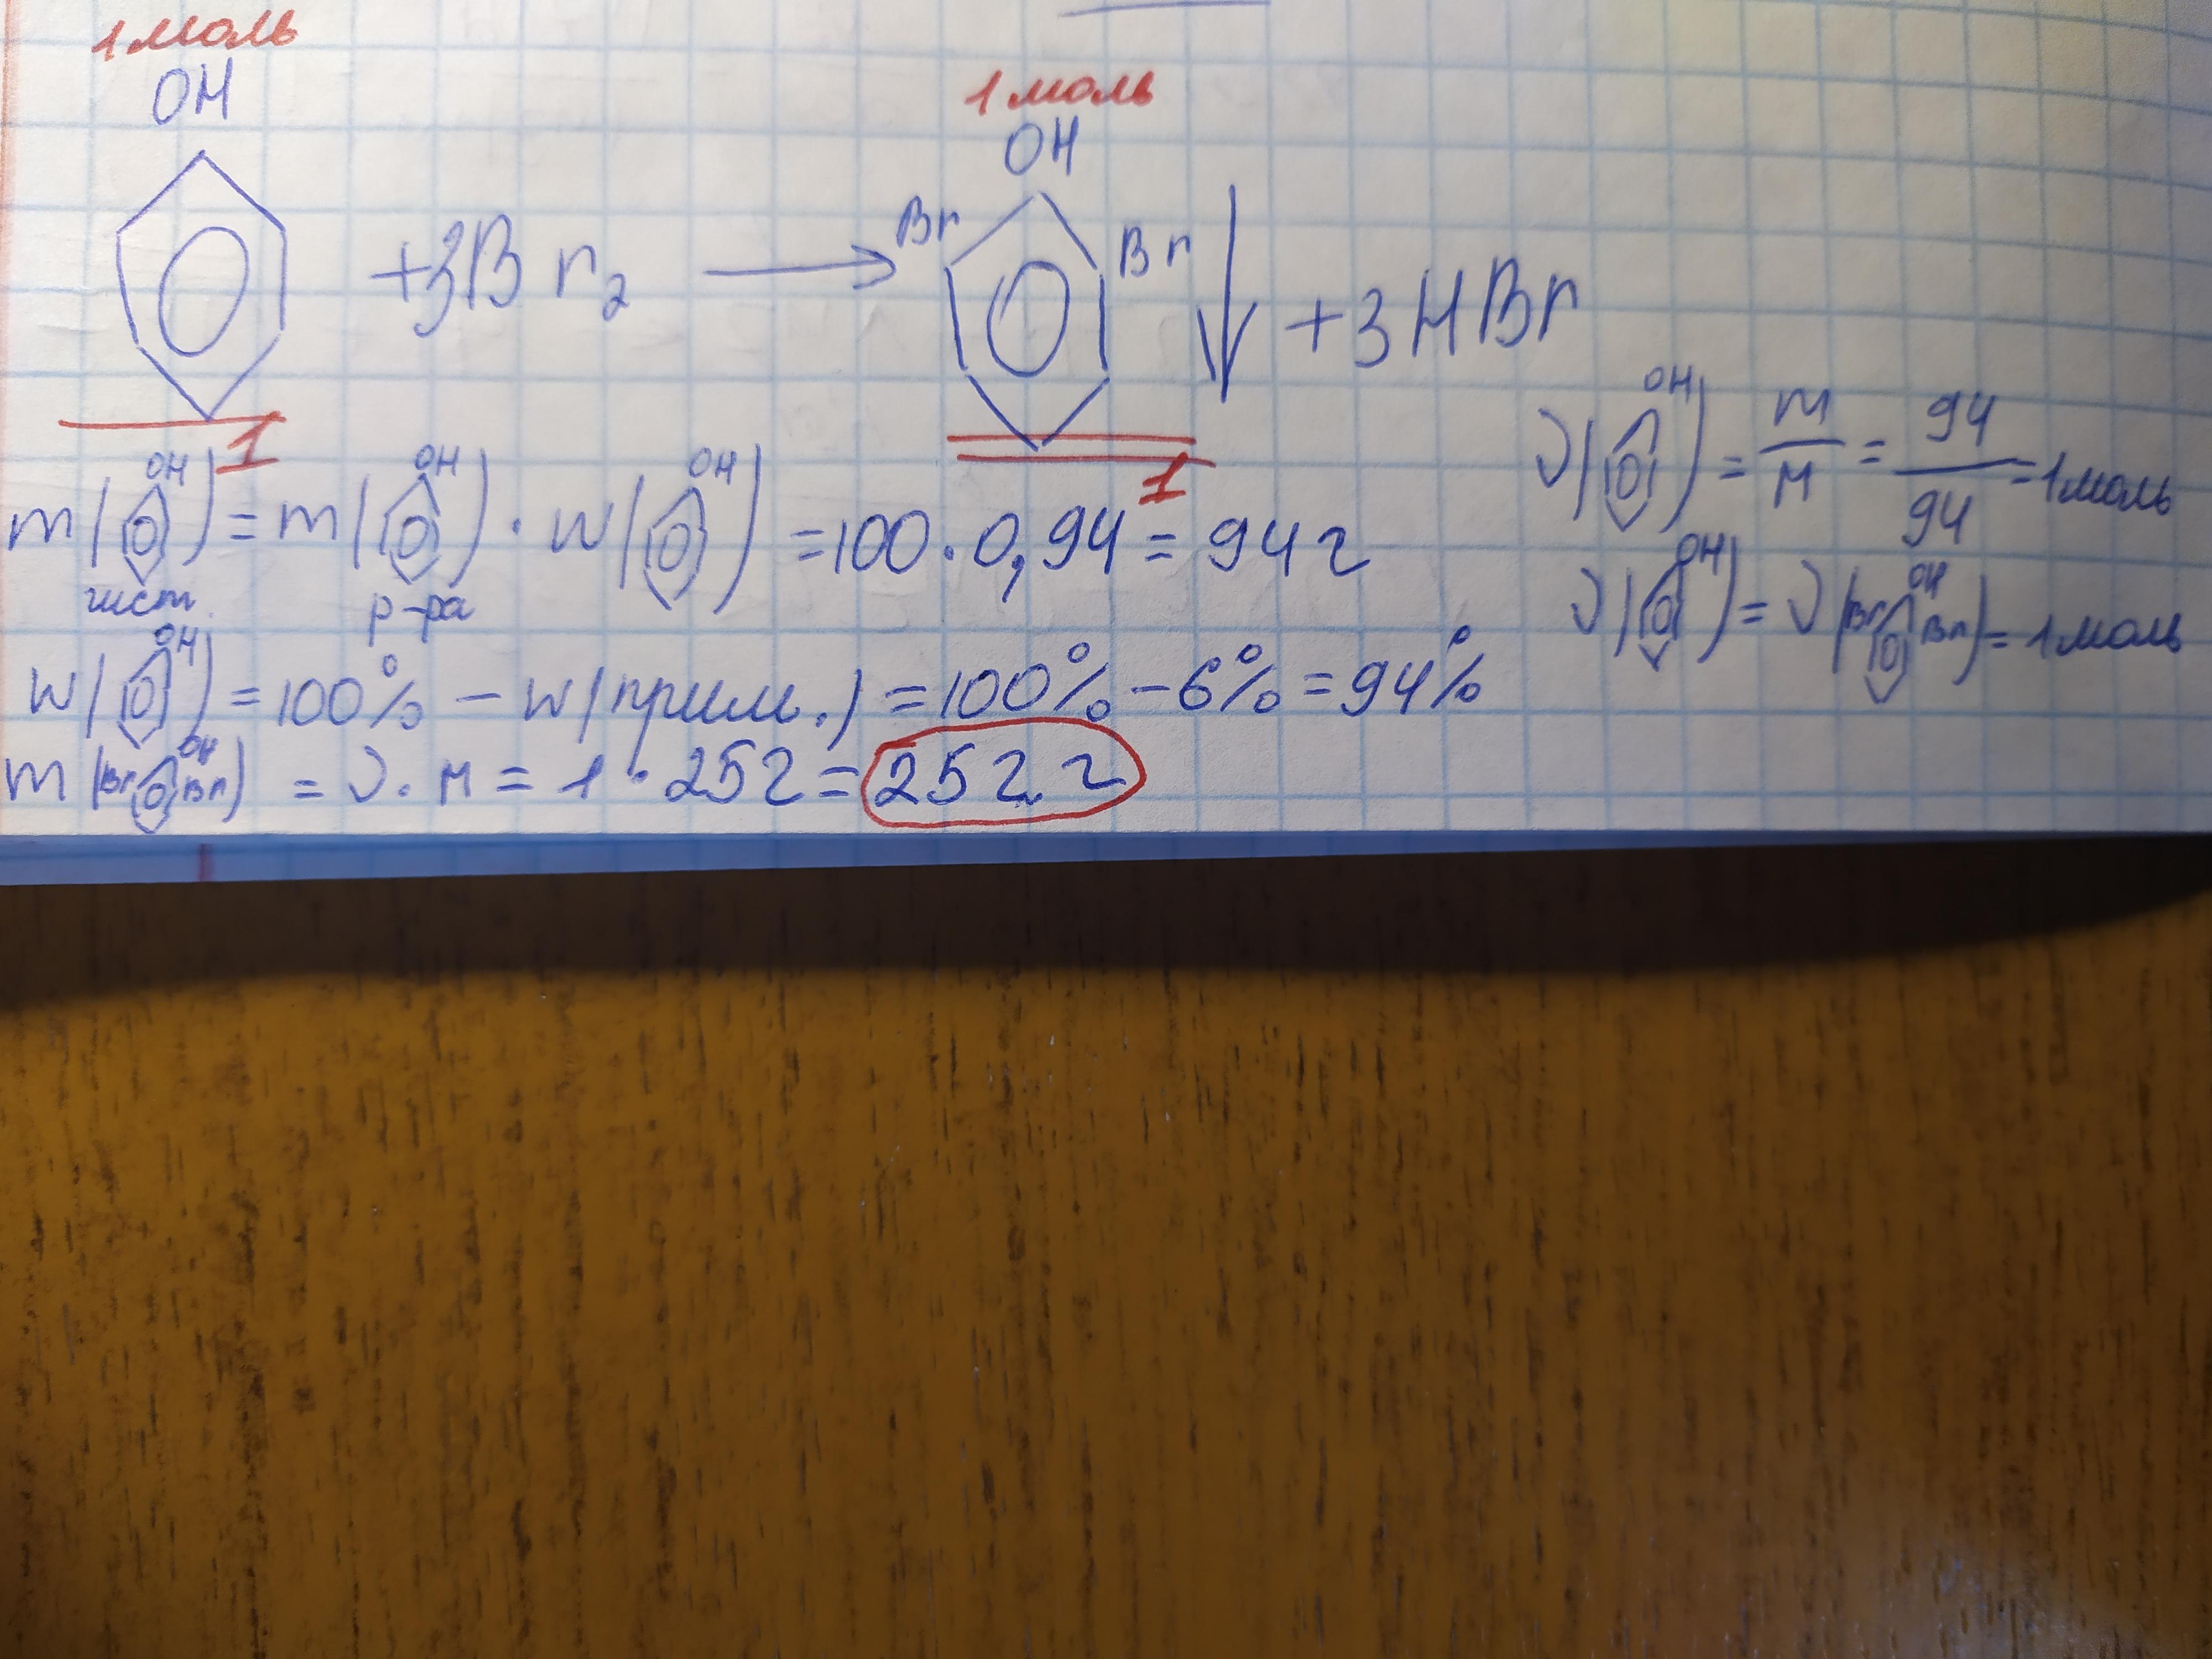 1 моль
OH
1 моль
OH
+3Br₂ → Br Br ↓ +3HBr
1
1
m(OH) чист. = m(OH) р-ра · w(OH) = 100 · 0,94 = 94 г
w(OH) = 100% - w(прим.) = 100% - 6% = 94%
m(Br OH Br) = ν · M = 1 · 252 = 252 г
ν(OH) = m/M = 94/94 = 1 моль
ν(OH) = ν(Br OH Br) = 1 моль